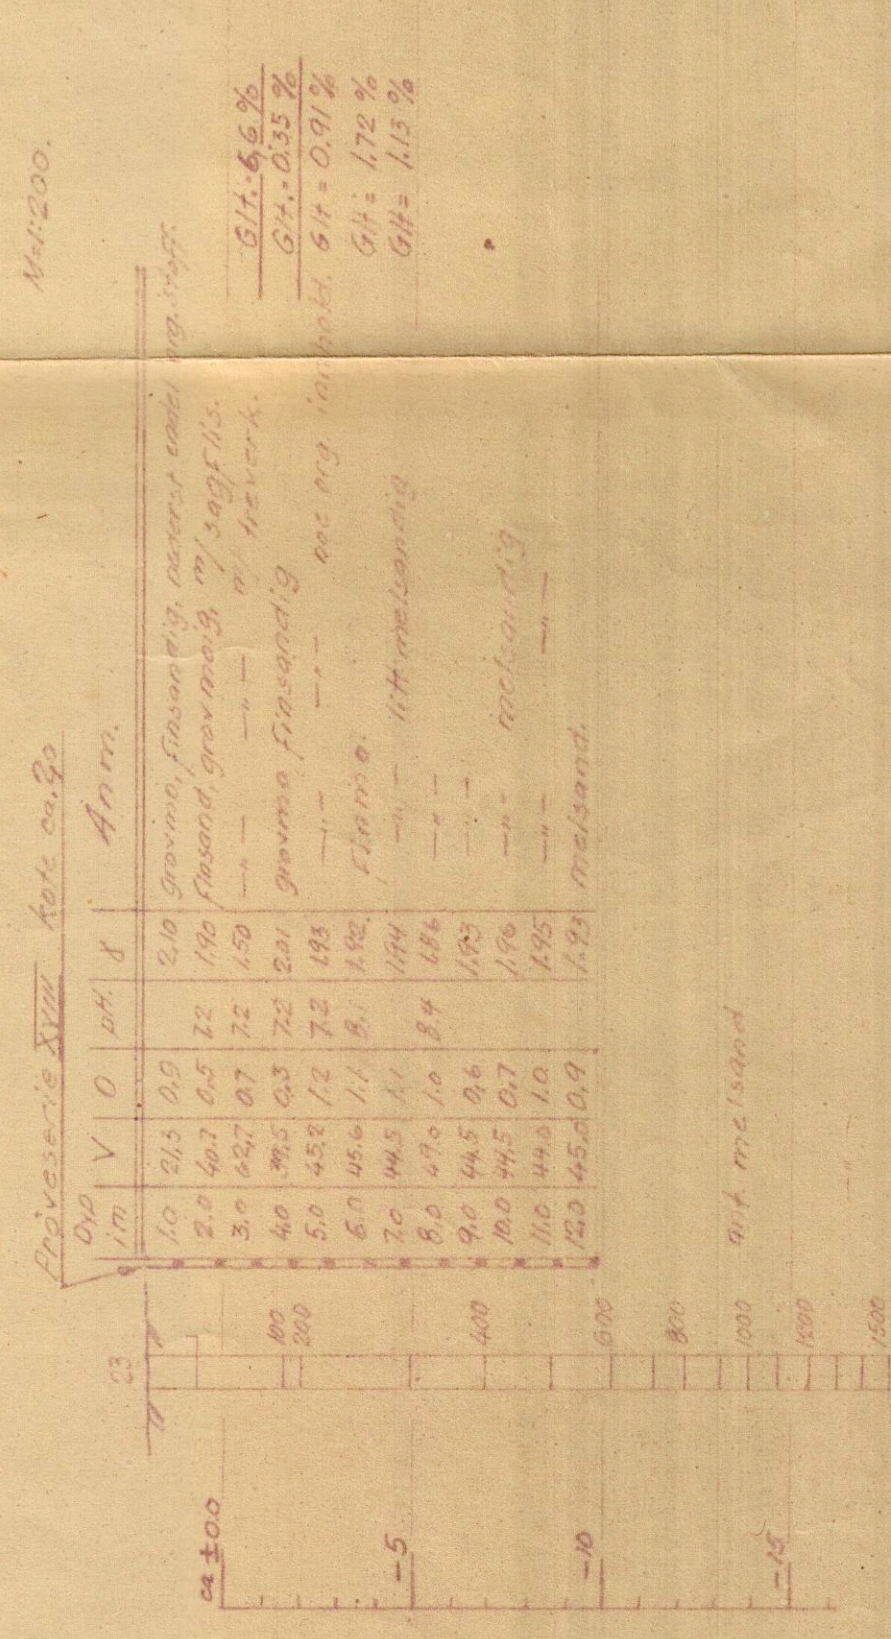 M=1:200.
Prøveserie XVIII kote ca. 2,0
Dyp i m V O pH. γ Anm.
1.0 21,3 0.9 2,10 grovmo, finsandig, nederst endel org. stoff.
2.0 40.7 0.5 7.2 1.90 finsand, grovmoig, m/sagflis.
3.0 62,7 0.7 7.2 1.50 —"— —"— m/ treverk. Glt. = 6,6 %
4.0 39,5 0,3 7.2 2.01 grovmo finsandig Glt. = 0.35 %
5.0 45.2 1.2 7.2 1.93 —"— —"— noe org innhold. Glt = 0.91 %
6.0 45.6 1.1 8.1 1.92. Finmo. Glt = 1.72 %
7.0 44.5 1.1 1.94 —"— litt melsandig Glt = 1.13 %
8.0 49.0 1.0 8.4 1.86 —"—
9.0 44.5 0,6 1.93 —"—
10.0 44.5 0.7 1.96 —"— melsandig
11.0 44.0 1.0. 1.95 —"— —"—
12.0 45.0 0,9 1.93 melsand.
23
100
200
400
600
800
1000
1500
ant. melsand
—"—
ca ±0.0
-5
-10
-15